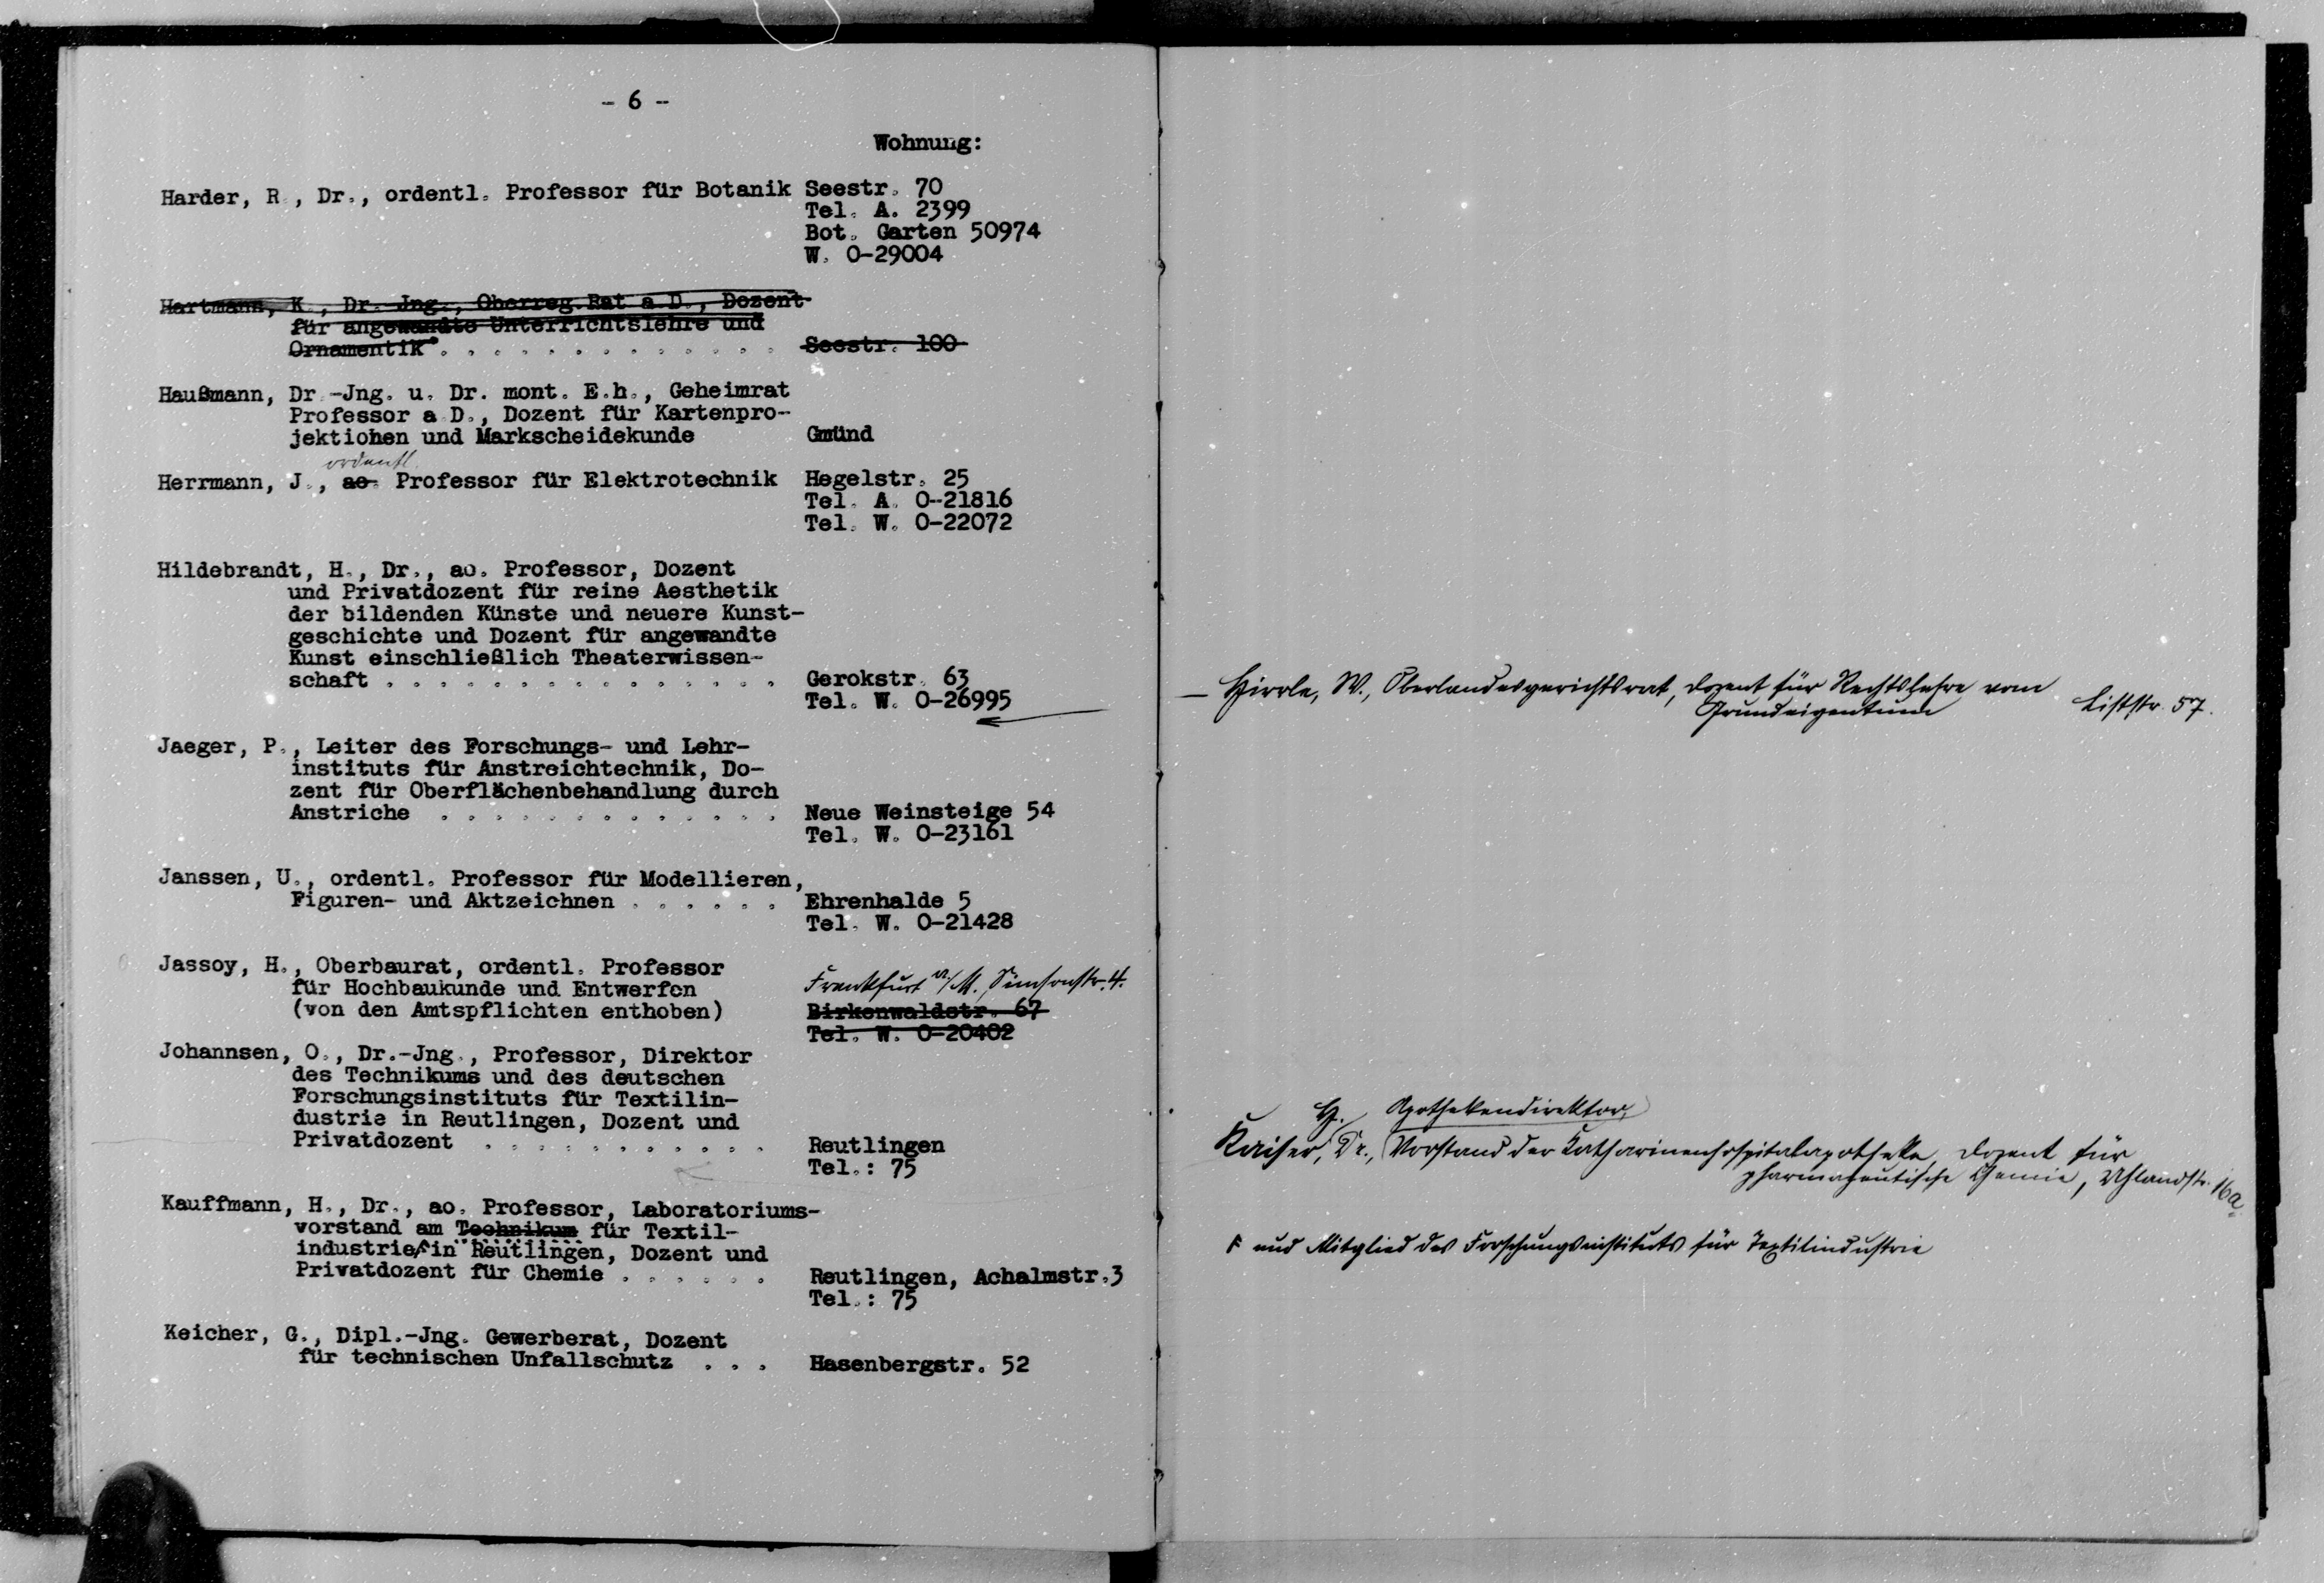 - 6 -
Wohnung:
Harder, R., Dr., ordentl. Professor für Botanik Seestr. 70
Tel. A. 2399
Bot. Garten 50974
W. 0-29004
Hartmann, K., Dr. Jng., Oberreg.Rat a.D., Dozent
für angewandte Unterrichtslehre und
Ornamentik . . . . . . . . . . . . . Seestr. 100
Haußmann, Dr.-Jng. u. Dr. mont. E.h., Geheimrat
Professor a.D., Dozent für Kartenpro-
jektionen und Markscheidekunde Gmünd
ordentl.
Herrmann, J., ao. Professor für Elektrotechnik Hegelstr. 25
Tel. A. 0-21816
Tel. W. 0-22072
Hildebrandt, H., Dr., ao. Professor, Dozent
und Privatdozent für reine Aesthetik
der bildenden Künste und neuere Kunst-
geschichte und Dozent für angewandte
Kunst einschließlich Theaterwissen-
schaft . . . . . . . . . . . . . . . Gerokstr. 63
Tel. W. 0-26995
Jaeger, P., Leiter des Forschungs- und Lehr-
instituts für Anstreichtechnik, Do-
zent für Oberflächenbehandlung durch
Anstriche . . . . . . . . . . . . . Neue Weinsteige 54
Tel. W. 0-23161
Janssen, U., ordentl. Professor für Modellieren,
Figuren- und Aktzeichnen . . . . . . Ehrenhalde 5
Tel. W. 0-21428
Jassoy, H., Oberbaurat, ordentl. Professor
für Hochbaukunde und Entwerfen Frankfurt a/M., Simsonstr. 4.
(von den Amtspflichten enthoben) Birkenwaldstr. 67
Tel. W. 0-20402
Johannsen, O., Dr.-Jng., Professor, Direktor
des Technikums und des deutschen
Forschungsinstituts für Textilin-
dustrie in Reutlingen, Dozent und
Privatdozent . . . . . . . . . . . Reutlingen
Tel.: 75
Kauffmann, H., Dr., ao. Professor, Laboratoriums-
vorstand am Technikum für Textil-
industrie in Reutlingen, Dozent und
Privatdozent für Chemie . . . . . . Reutlingen, Achalmstr.3
Tel.: 75
Keicher, G., Dipl.-Jng. Gewerberat, Dozent
für technischen Unfallschutz . . . Hasenbergstr. 52
— Hirrle, W., Oberlandesgerichtsrat, Dozent für Rechtslehre vom
Grundeigentum Liststr. 57.
H. Apothekendirektor,
Kaiser, Dr., Vorstand der Katharinenhospitalapotheke, Dozent für
pharmazeutische Chemie, Uhlandstr. 16a
und Mitglied des Forschungsinstituts für Textilindustrie